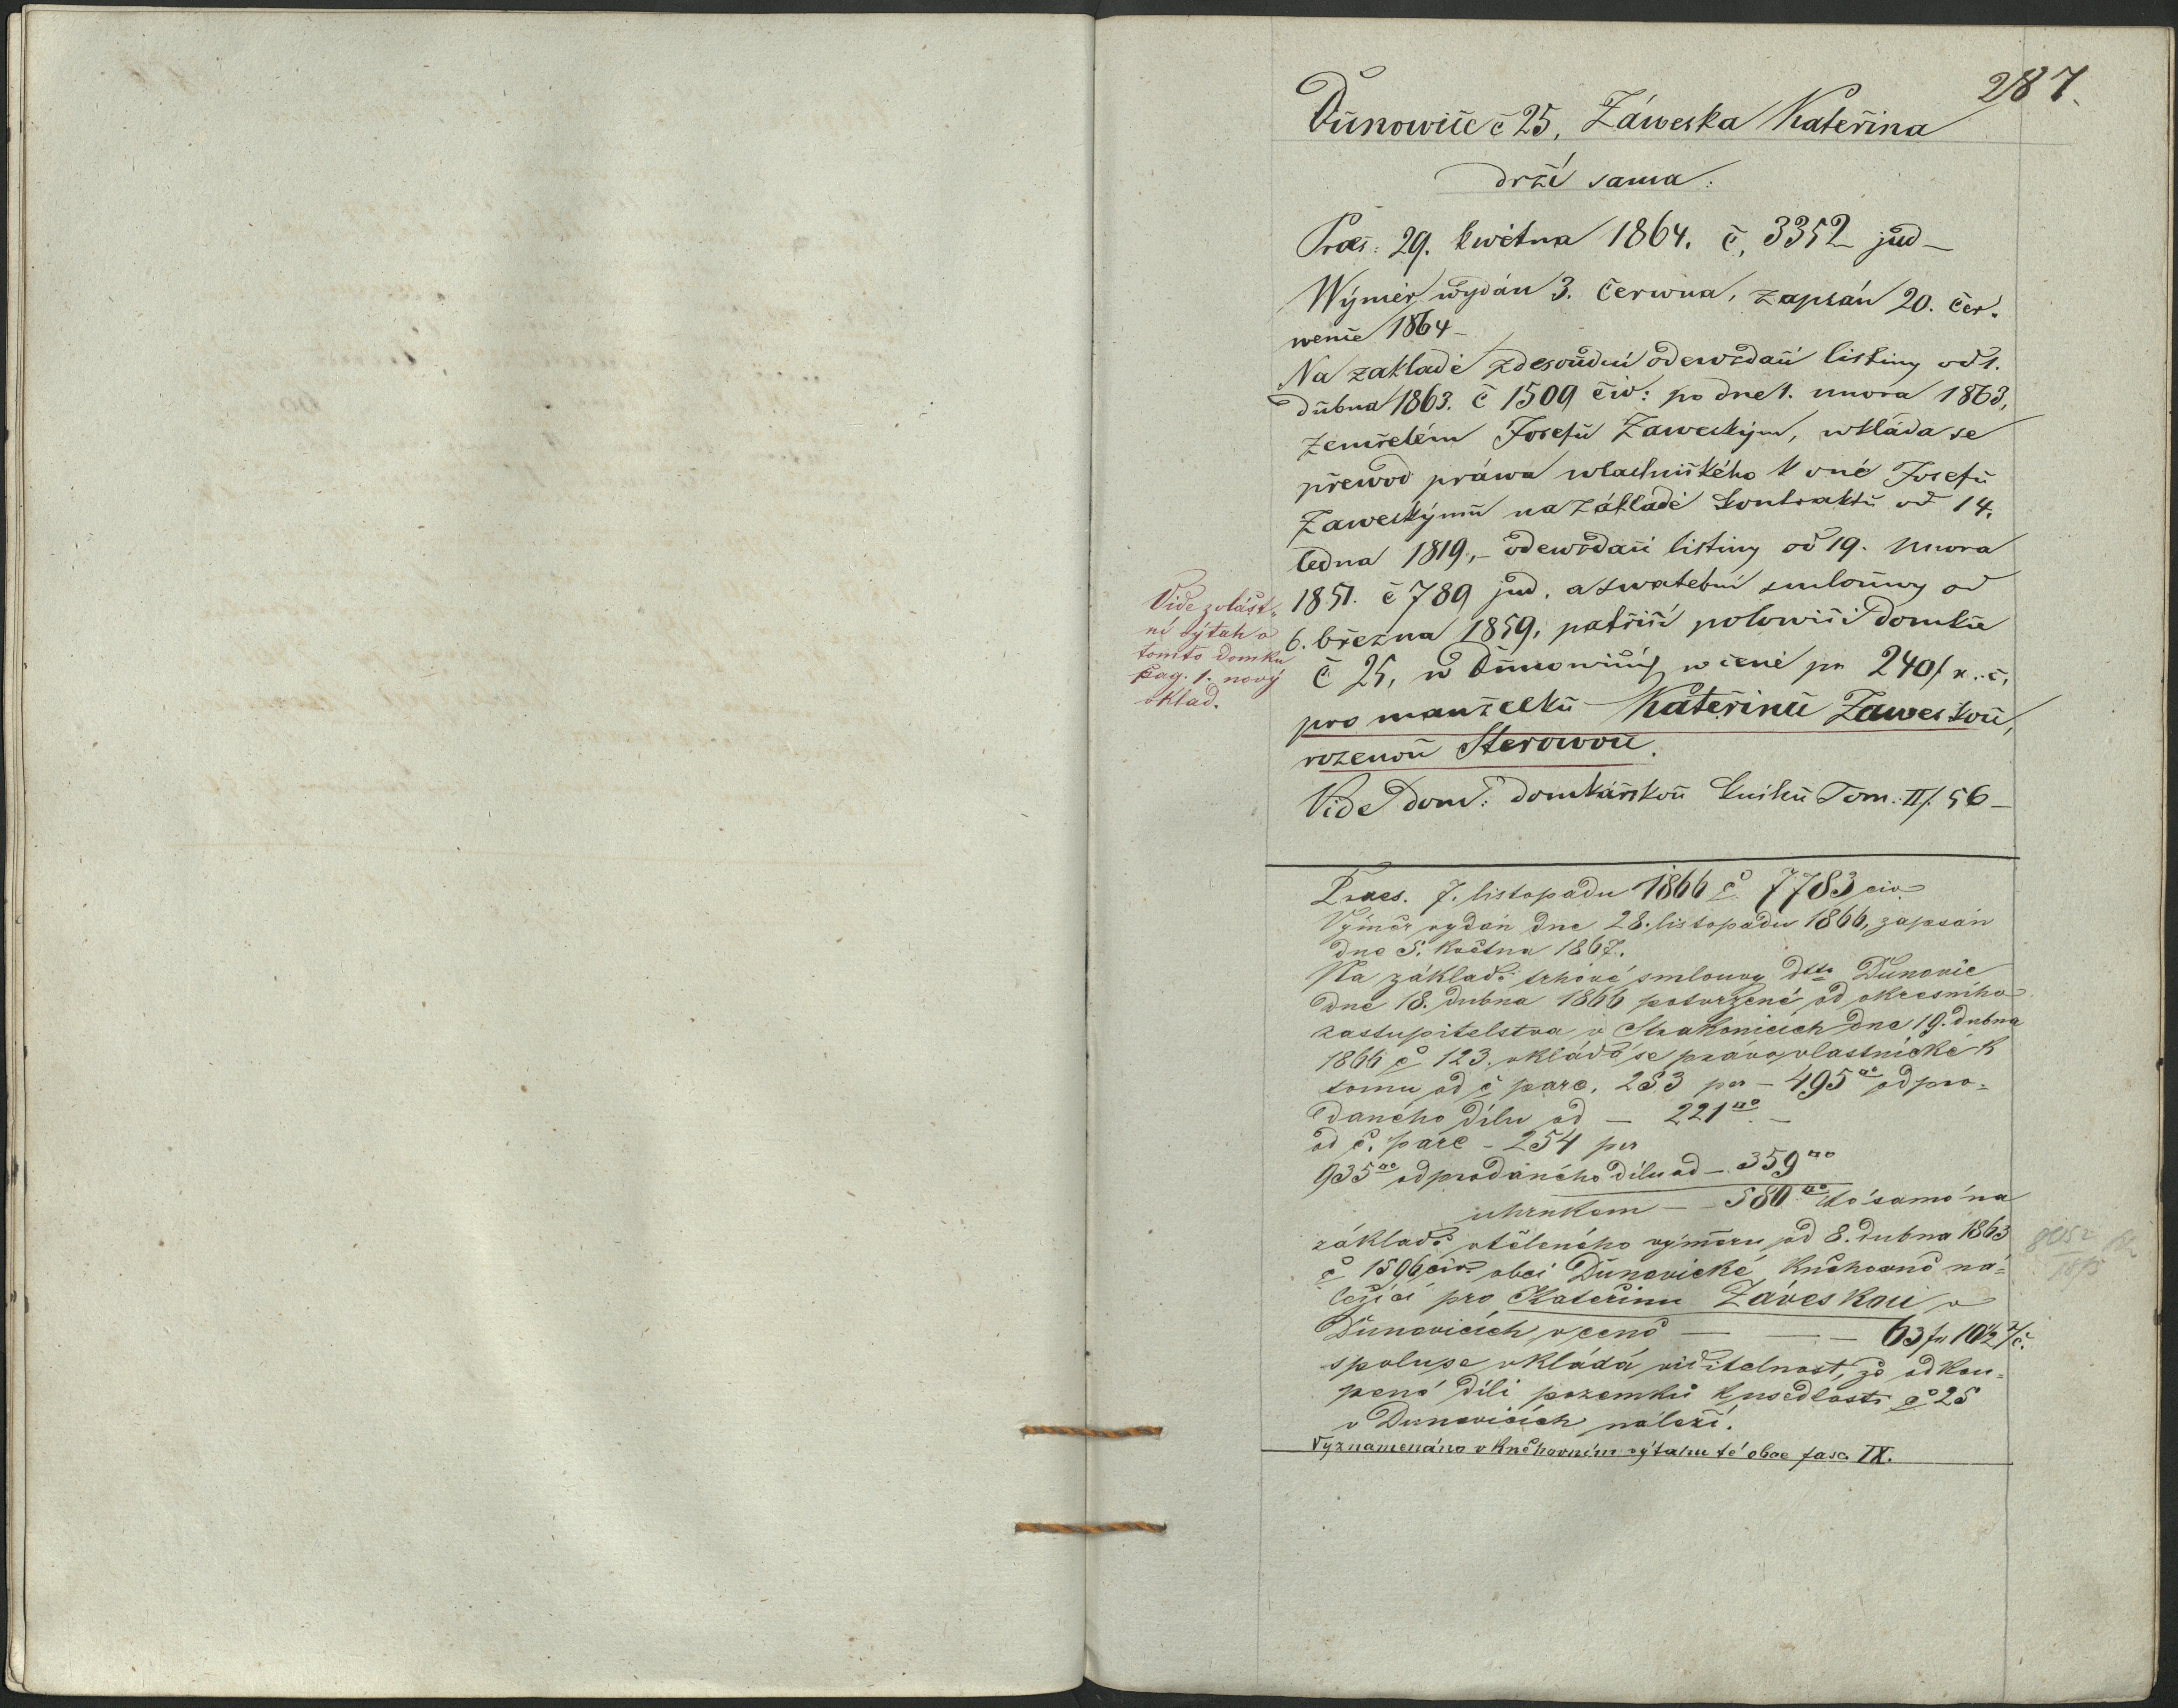 287.
Ďunowice č 25, Záweska Kateřina
drží sama:
Praes: 29. května 1864. č. 3352 jud
Wýměr wydán 3. června, zapsán 20. čer-
wence 1864
Na zakladě zdesoudní odewzdací listiny od 1.
dubna 1863. č 1509 civ: po dne 1. unora 1863,
zemřelém Josefu Zaweským, wkláda se
převod práwa wlastnického k oné Josefu
Zaweskýmu na základě kontraktu od 14.
ledna 1819, odewzdací listiny od 19. unora
1851. č 789 jud. a swatební smlouwy od
6. března 1859, patřící polowici domku
č 25, w Ďunowicích w ceně pr 240 f r. č,
pro manželku Kateřinu Zaweskou,
rozenou Sterowou.
Vide dom: domkářskou knihu Tom. II f. 56
Vide zvlášt-
ní výtah o
tomto domku
pag. 1. nový
vklad.
Praes. 7. listopadu 1866 č 7783 civ
Výměr vydán dne 28. listopadu 1866, zapsán
dne 5. května 1867.
Na základě trhové smlouvy dtto Ďunovic
dne 18. dubna 1866 potvrzené od okresního
zastupitelstva v Strakonicích dne 19. dubna
1866 č 123, vkládá se právo vlastnické k
tomu od č parc. 253 per – 495 odpro-
daného dílu od – 221
od č. parc – 254 per
935 odprodaného dílu od – 359
uhrnkem – 580 to samé na
základě vtěleného výměru od 8. dubna 1863
č 1596 civ obci Ďunovické knihovně ná-
ležící pro Kateřinu Záveskou v
Ďunovicích v ceně — — — 63 fr 10 1/2 r. č.
spolu se vkládá viditelnost, že odkou-
pené díli pozemků k usedlosti č 25
v Dunovicích náleží.
Vyznamenáno v knihovním výtahu té obce fasc. IX.